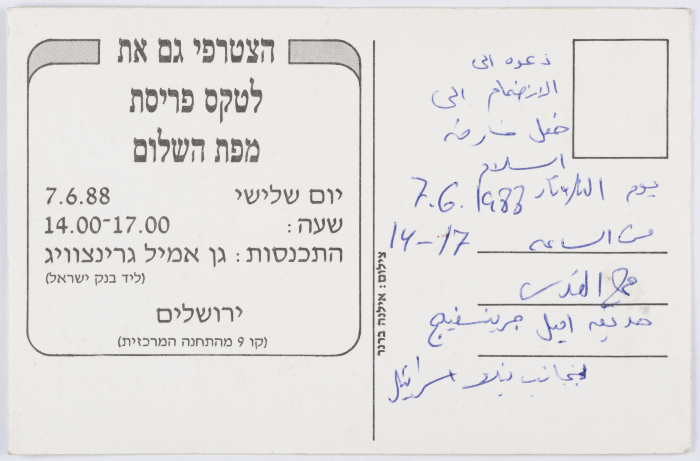 הצטרפי גם את
לטקס פריסת
מפת השלום
יום שלישי 7.6.88
שעה: 14.00-17.00
התכנסות: גן אמיל גרינצוויג
(ליד בנק ישראל)
ירושלים
(קו 9 מהתחנה המרכזית)
צילום: אילנה ברור
دعوه الى
الانضمام الى
حفل خارطه
السلام
يوم الثلاثاء 7.6.1988
من الساعه 14-17
القدس
حديقه اميل جرينسفيج
بجانب بنك اسرائيل